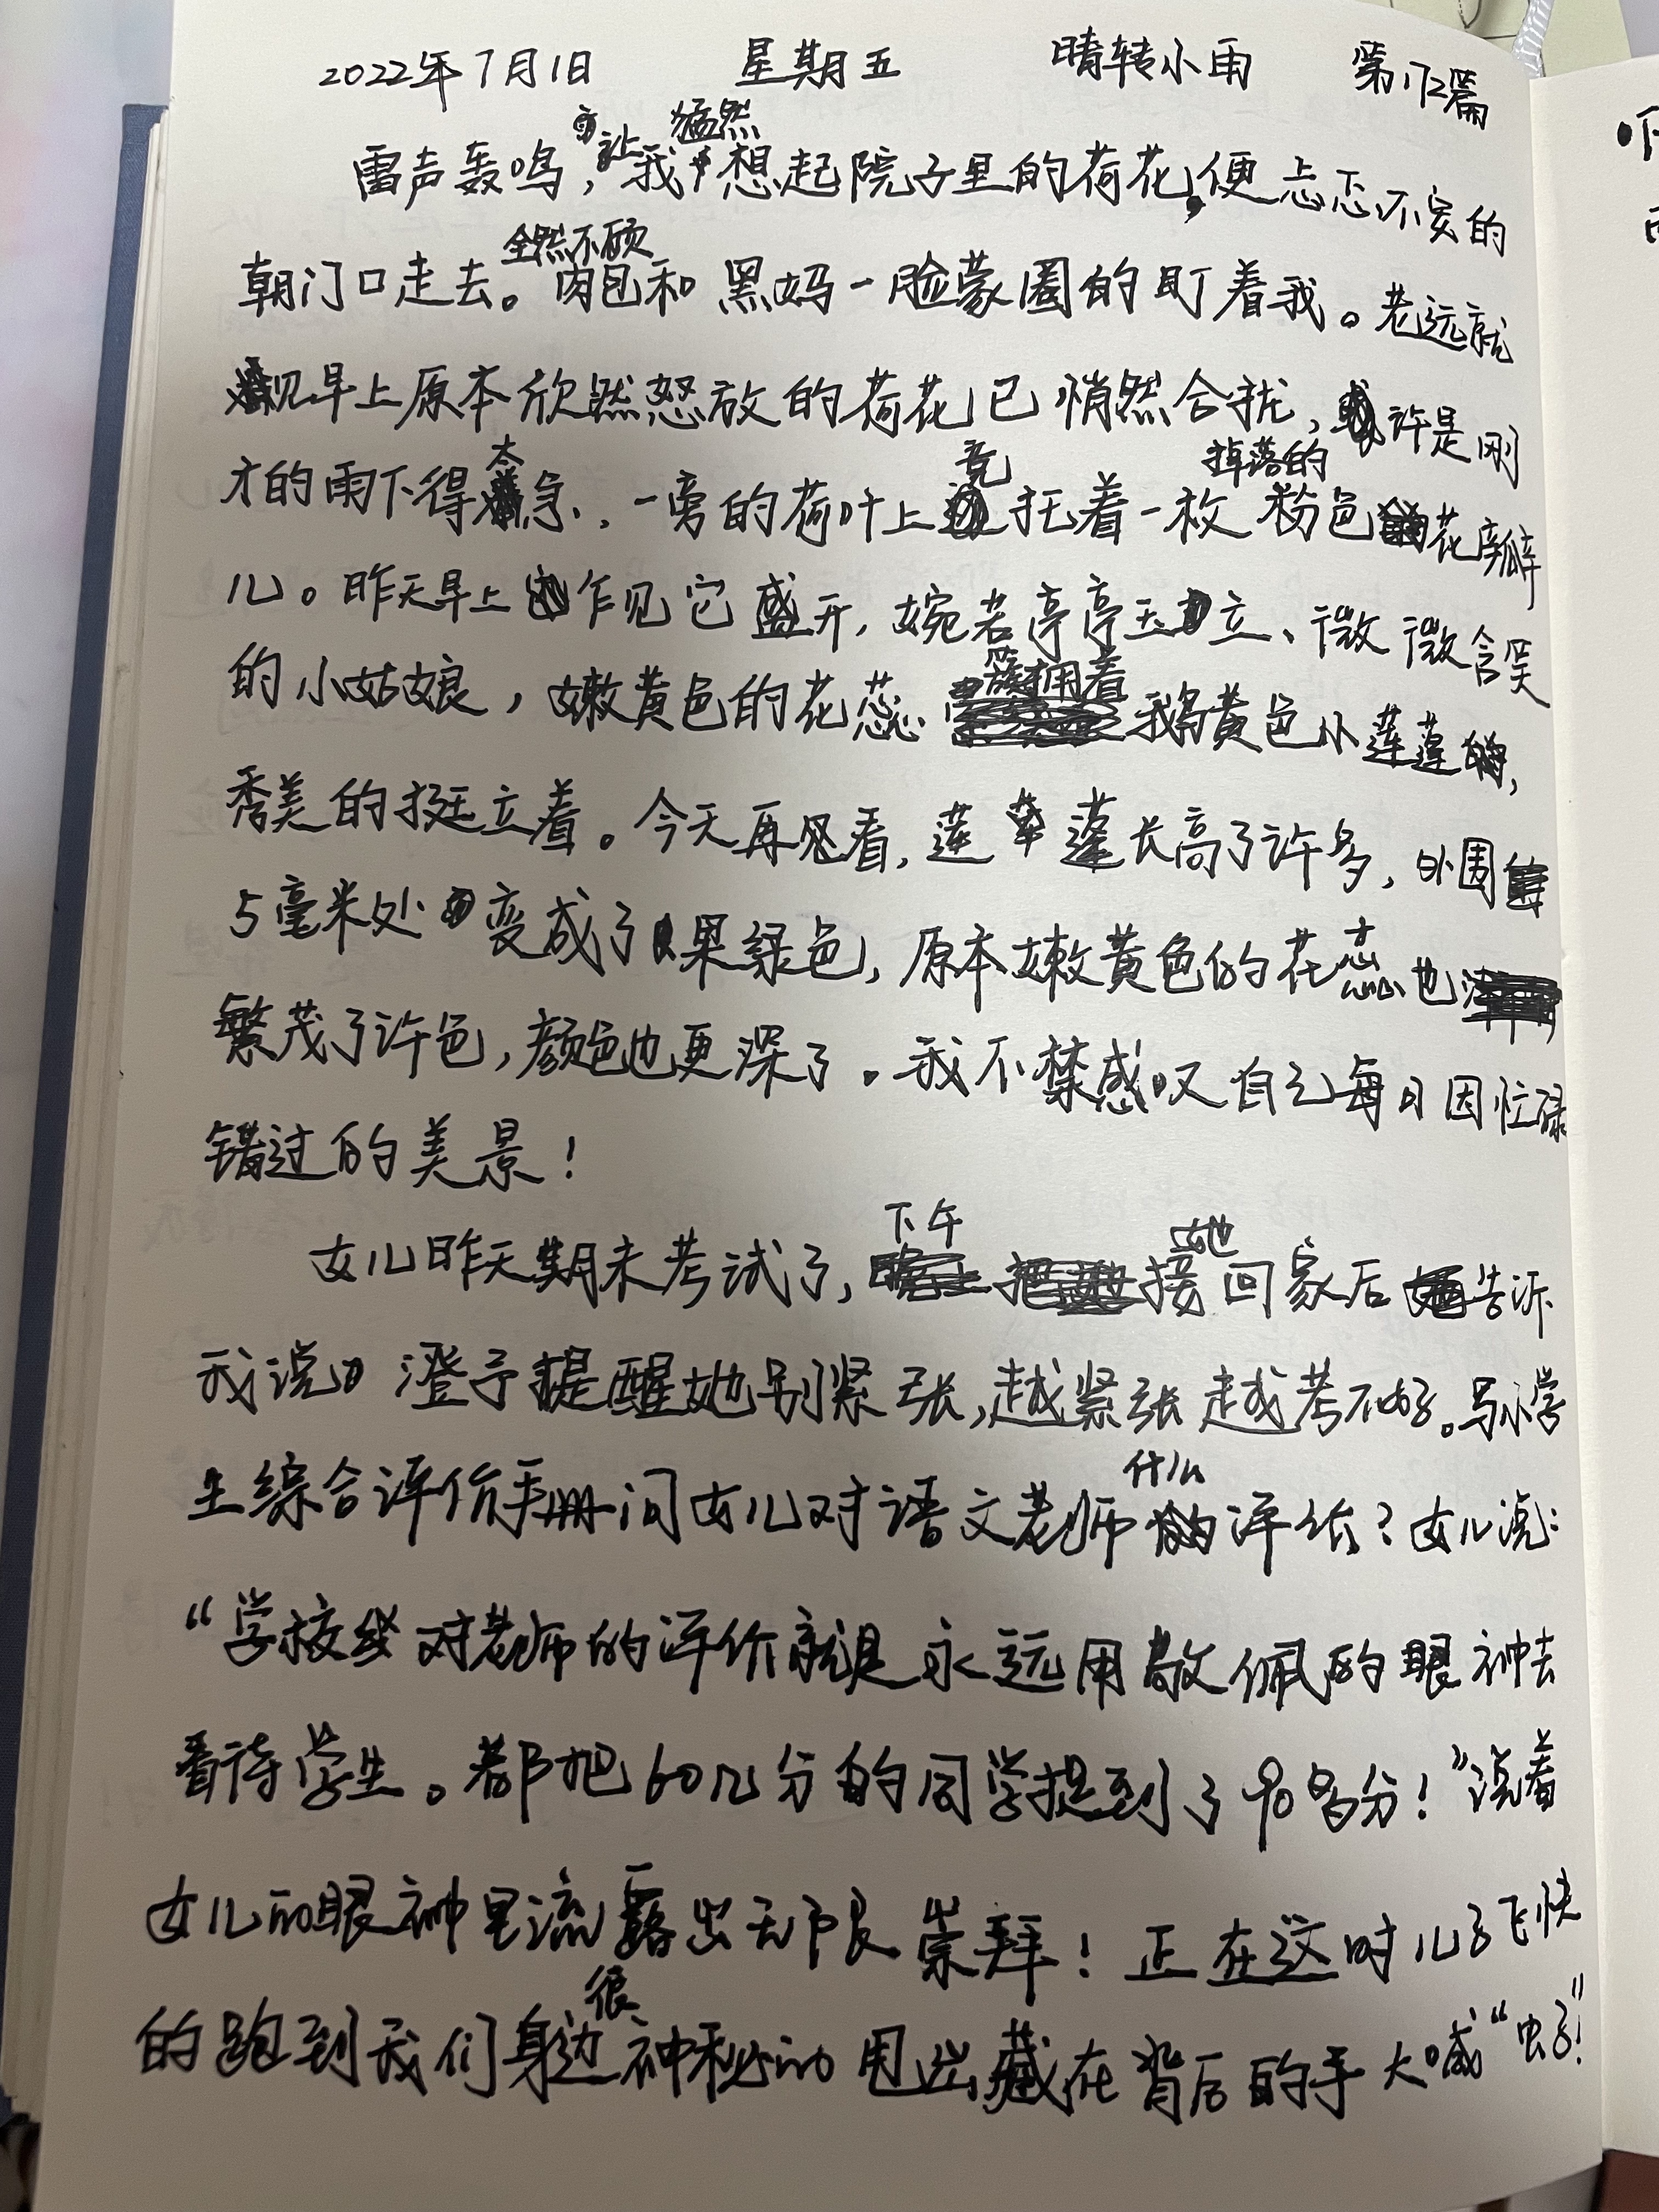 2022年7月1日 星期五 晴转小雨 第172篇
雷声轰鸣,让我猛然想起院子里的荷花,便忐忑不安的
朝门口走去。全然不顾肉包和黑妈一脸蒙圈的盯着我。老远就
见早上原本欣然怒放的荷花已悄然合拢,许是刚
才的雨下得太急,一旁的荷叶上竟托着一枚掉落的粉色花瓣
儿。昨天早上乍见它盛开,婉若亭亭玉立、微微含笑
的小姑娘,嫩黄色的花蕊簇拥着鹅黄色小莲蓬,
秀美的挺立着。今天再看,莲蓬长高了许多,外围
5毫米处变成了果绿色,原本嫩黄色的花蕊也
繁茂了许色,颜色也更深了。我不禁感叹自己每日因忙碌
错过的美景!
女儿昨天期末考试了,下午接她回家后告诉
我说澄予提醒她别紧张,越紧张越考不好。写小学
生综合评价手册问女儿对语文老师什么评估?女儿说:
“学校对老师的评价就是永远用敬佩的眼神去
看待学生。都把60几分的同学提到了90多分!”说着
女儿的眼神里流露出无限崇拜!正在这时儿子飞快
的跑到我们身边很神秘的甩出藏在背后的手大喊“虫子!”